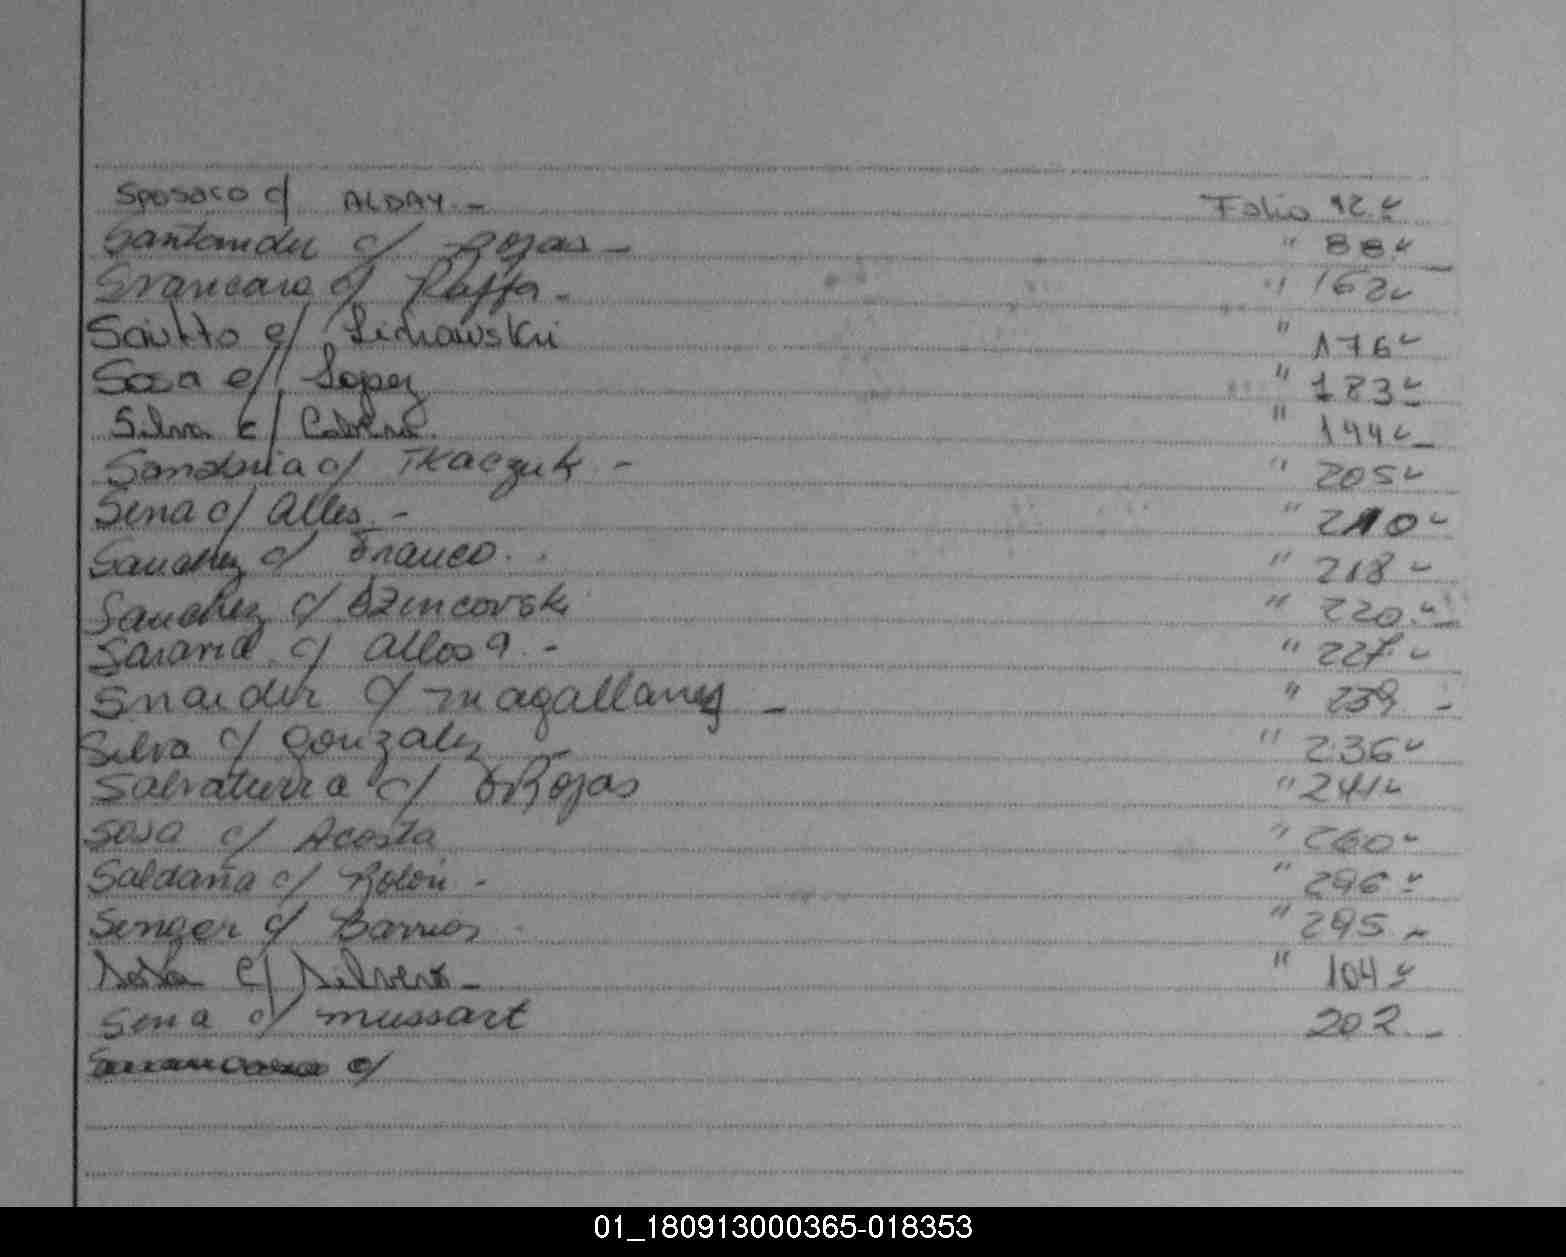 Sposaro c/ ALDAY.- Folio 12
Santander c/ Rojas - " 88
c/ Raffa.- " 162
Sciutto c/ Lichowski " 176
Sosa c/ Lopez " 183
Silva c/ Cabrera. " 144
Sanabria c/ Tkaczuk.- " 205
Sena c/ Alles.- " 210
Sanchez c/ Franco. " 218
Sanchez c/ " 220.-
c/ - " 227
Snaider c/ Magallanes - " 239 -
Silva c/ Gonzalez " 236
Salvatierra c/ Rojas " 241
Sosa c/ Acosta " 260
Saldaña c/ Rolon.- " 296
Senger c/ Barrios " 295
c/ - " 104
Sena c/ Mussart 202.-
c/
01_180913000365-018353